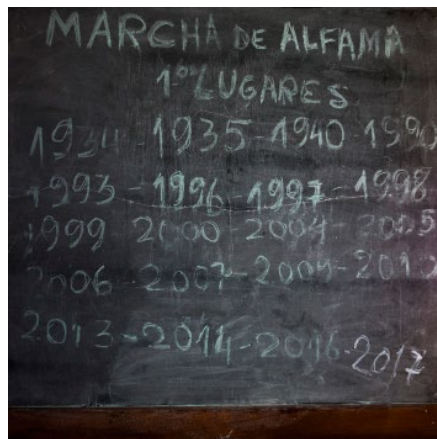 MARCHA DE ALFAMA
1ºˢ LUGARES
1934 - 1935 - 1940 - 1990
1993 - 1996 - 1997 - 1998
1999 2000 - 2004 - 2005
2006 - 2007 - 2009 - 2010
2013 - 2014 - 2016 - 2017